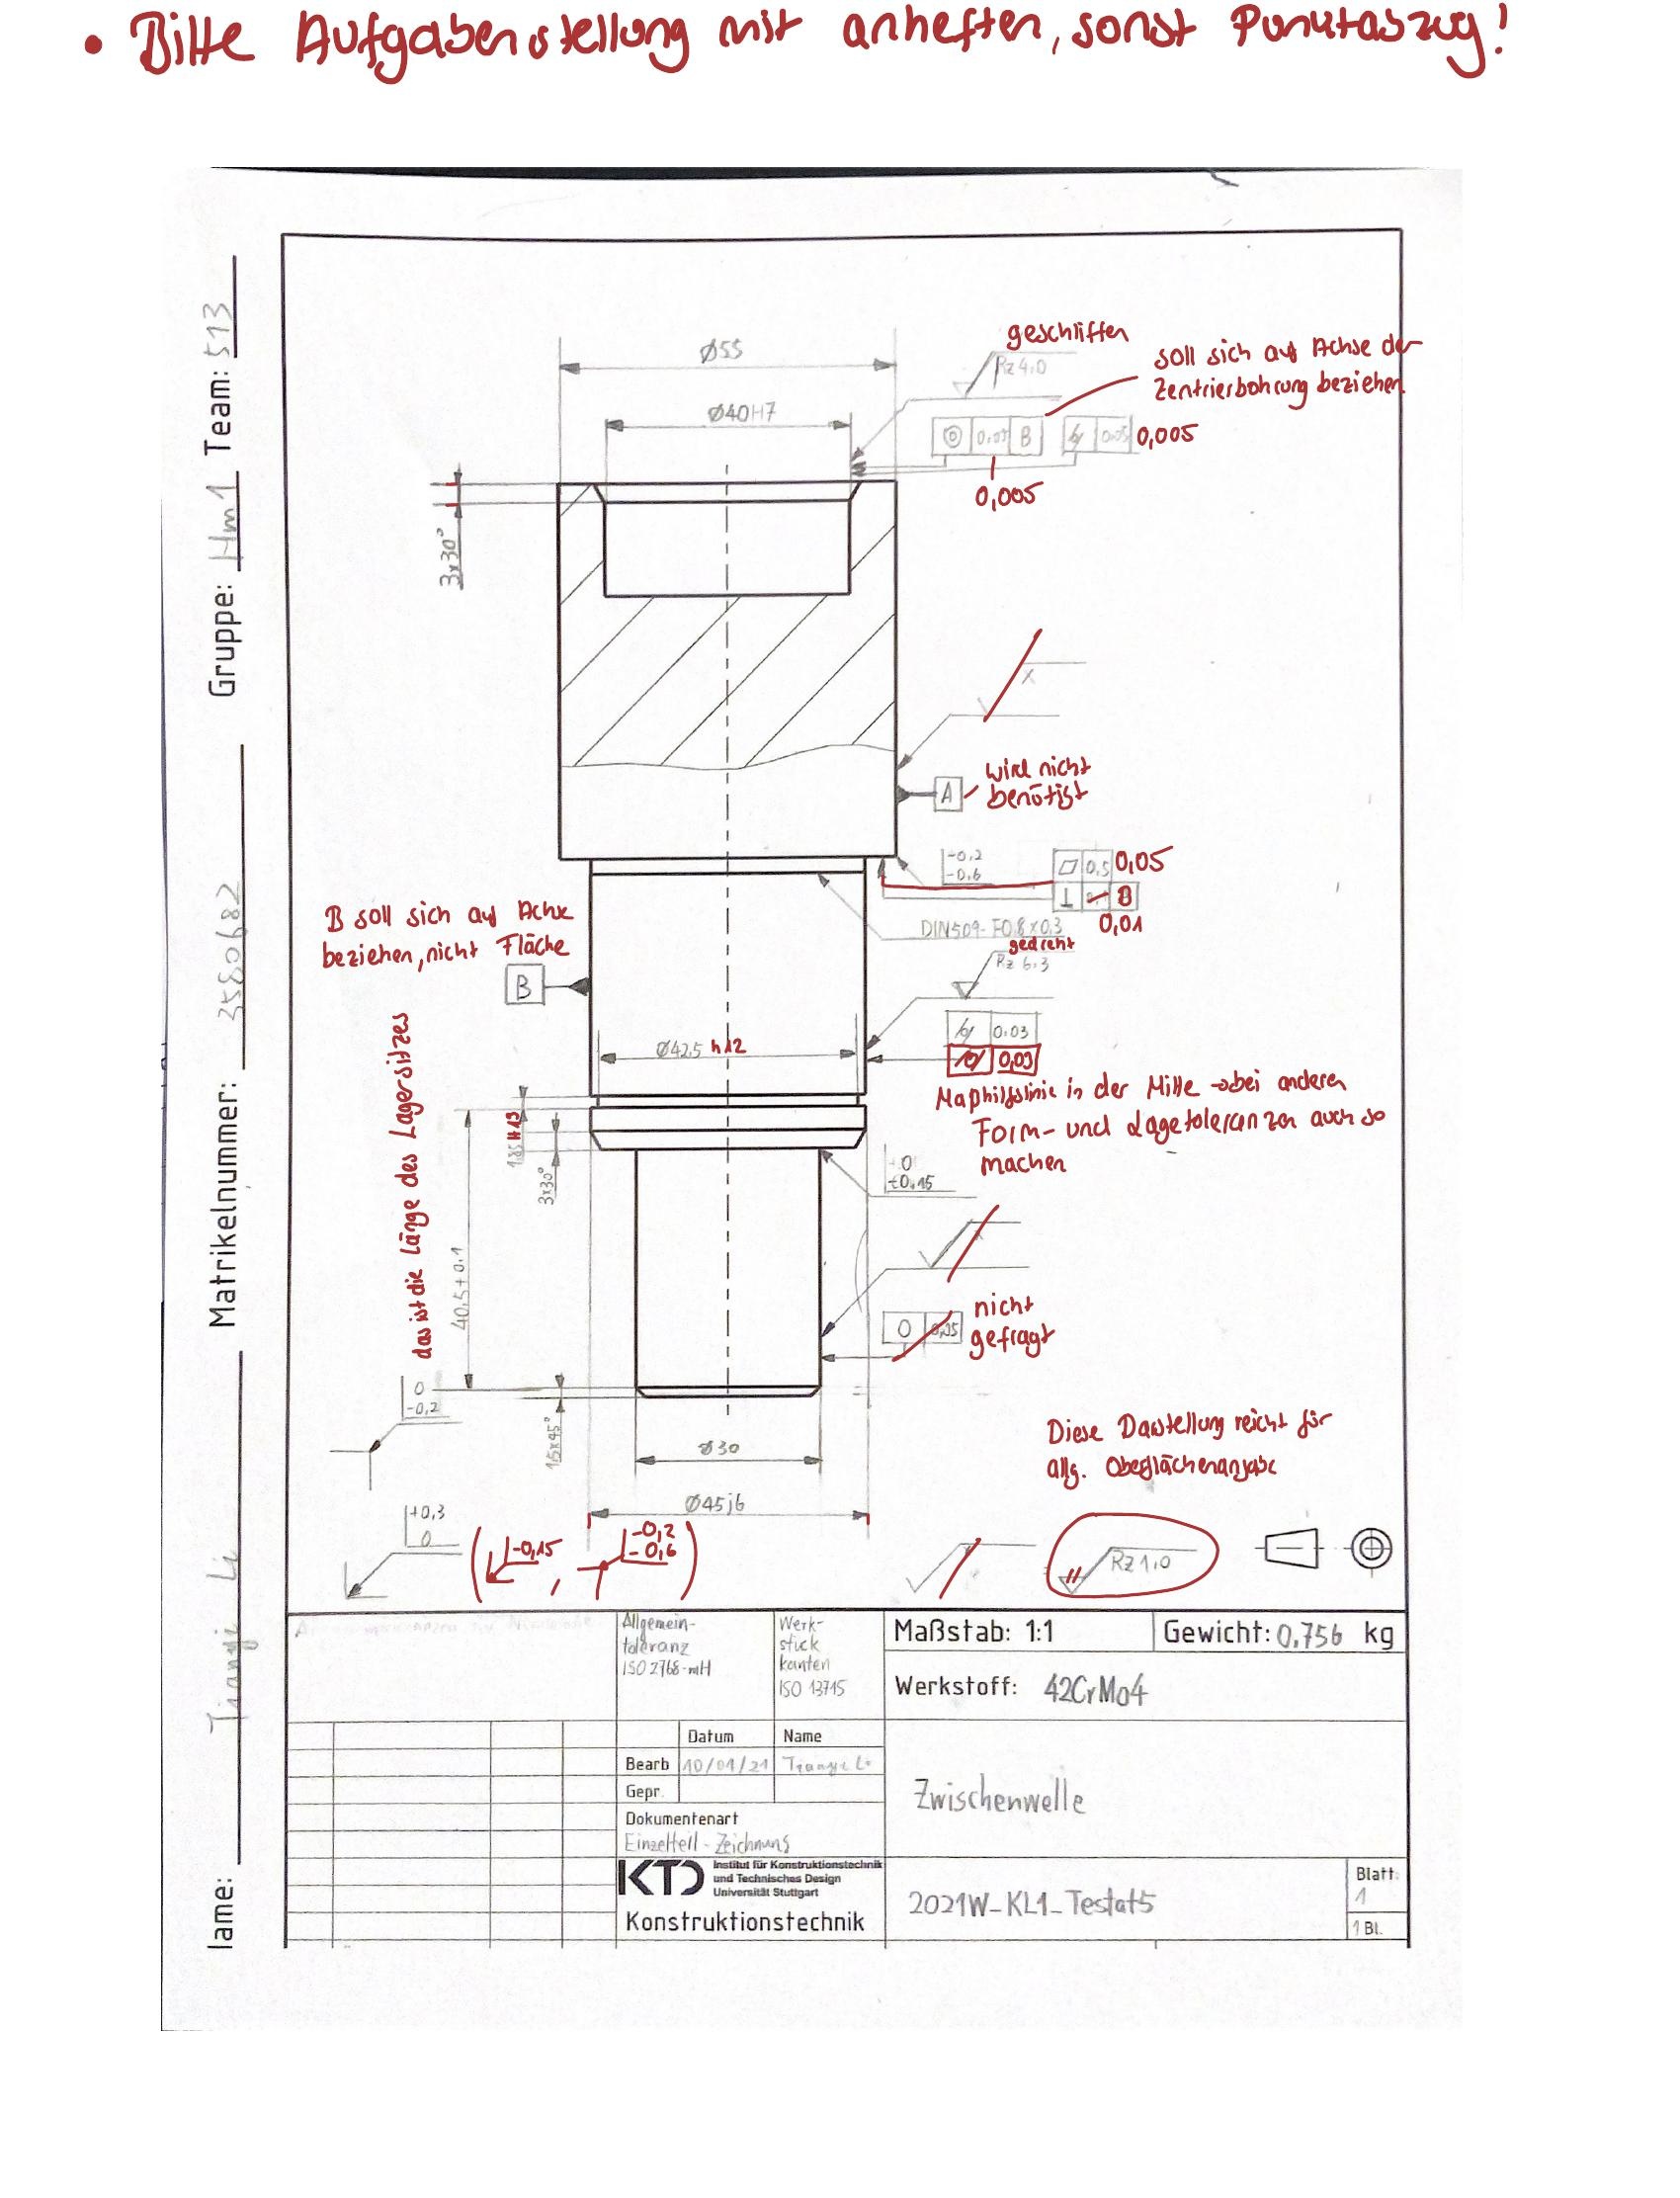 • Bitte Aufgabenstellung mit anheften, sonst Punktabzug!
Name: Tianyi Li Matrikelnummer: 3580682 Gruppe: Hm1 Team: 513
Ø55
Ø40H7
geschliffen
Rz 4.0
soll sich auf Achse der
Zentrierbohrung beziehen
◎ B
0,005
0,005
3x30°
x
A
wird nicht
benötigt
-0.2
-0.6
⏥ 0.5 0,05
⊥ B
0,01
DIN509-F0.8x0.3
gedreht
Rz 6.3
B soll sich auf Achse
beziehen, nicht Fläche
B
⌭ 0.03
⌭ 0,03
Ø42.5 h12
Maßhilfslinie in der Mitte → bei anderen
Form- und Lagetoleranzen auch so
machen
1.85 H13
3x30°
das ist die Länge des Lagersitzes
40.5+0.1
+0.15
nicht
gefragt
0
-0,2
1.5x45°
Ø30
Ø45j6
Diese Darstellung reicht für
allg. Oberflächenangabe
+0,3
0
(-0,15 , -0,2
-0,6)
Rz 1.0
Allgemein-
toleranz
ISO 2768-mH
Werk-
stück
kanten
ISO 13715
Maßstab: 1:1
Gewicht: 0,756 kg
Werkstoff: 42CrMo4
Datum Name
Bearb 10/01/21 Tianyi Li
Gepr.
Dokumentenart
Einzelteil-Zeichnung
Zwischenwelle
KTD Institut für Konstruktionstechnik
und Technisches Design
Universität Stuttgart
Konstruktionstechnik
2021W_KL1_Testat5
Blatt:
1
1 Bl.